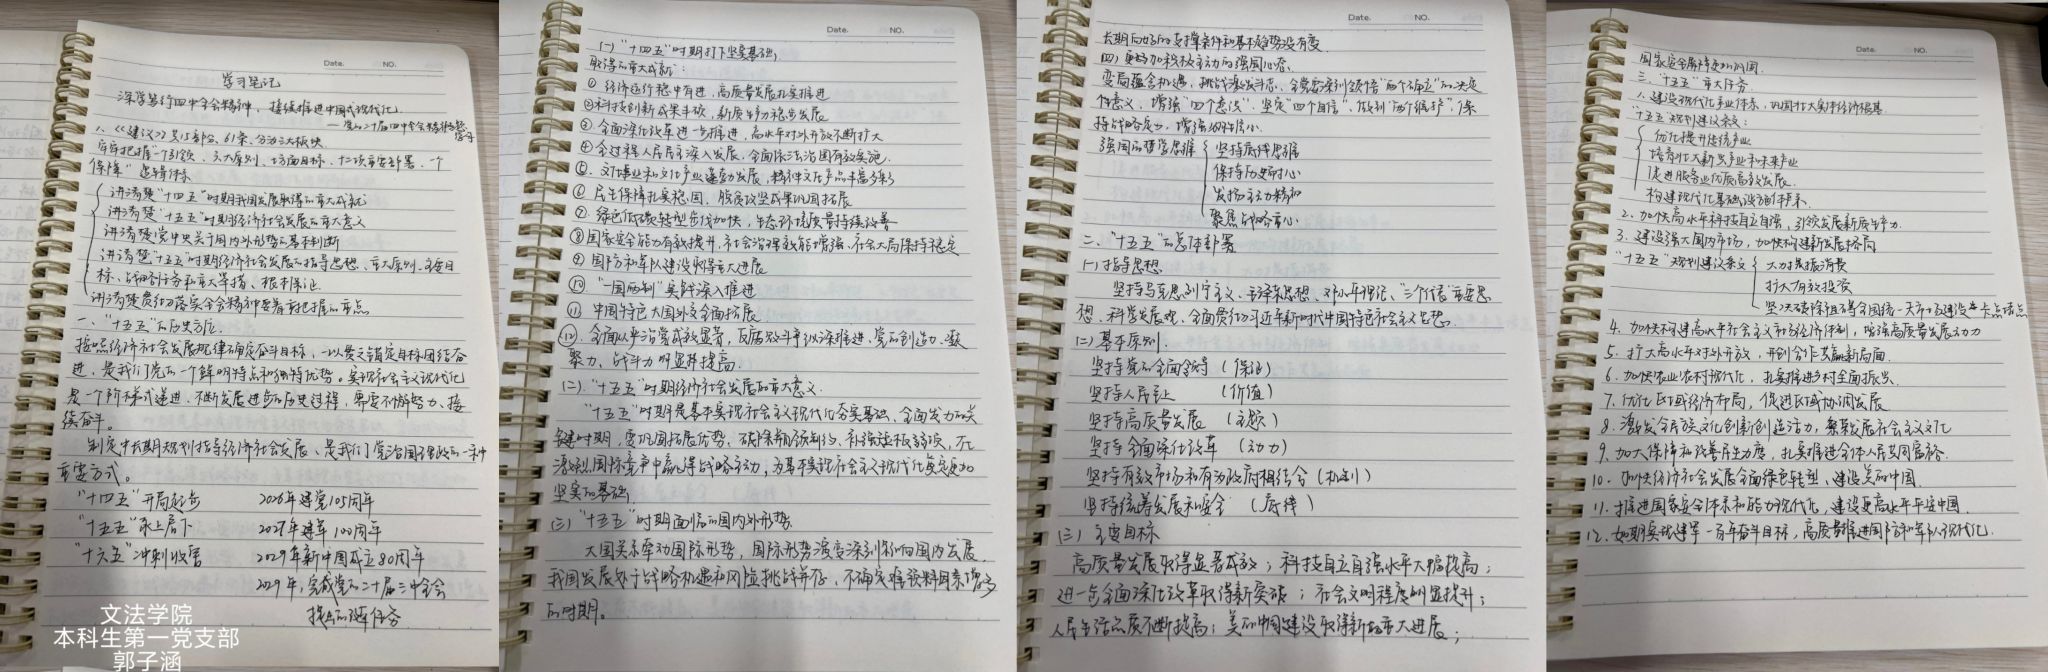 Date. NO.
学习笔记
深学笃行四中全会精神，接续推进中国式现代化
——党的二十届四中全会精神
1.《建议》共15部分、61条，分为三大板块
牢牢把握“一个引领、六大原则、七方面目标、十二项重要部署、一个
保障”逻辑体系
讲清楚“十四五”时期我国发展取得的重大成就
讲清楚“十五五”时期经济社会发展的重大意义
讲清楚党中央关于国内外形势的基本判断
讲清楚“十五五”时期经济社会发展的指导思想、重大原则、主要目
标、战略任务和重大举措、根本保证
讲清楚贯彻落实全会精神要着重把握的重点
一、“十五五”的历史方位
按照经济社会发展规律确定奋斗目标，一以贯之锚定目标团结奋
进，是我们党的一个鲜明特点和独特优势。实现社会主义现代化
是一个阶梯式递进、不断发展进步的历史过程，需要不懈努力、接
续奋斗。
制定中长期规划指导经济社会发展，是我们党治国理政的一种
重要方式。
“十四五”开局起步 2026年建党105周年
“十五五”承上启下 2027年建军100周年
“十六五”冲刺收官 2029年新中国成立80周年
2029年，完成党的二十届三中全会
提出的改革任务
文法学院
本科生第一党支部
郭子涵
Date. NO.
(一)“十四五”时期打下坚实基础，
取得的重大成就：
① 经济运行稳中有进，高质量发展扎实推进
②科技创新成果丰硕，新质生产力稳步发展
③全面深化改革进一步推进，高水平对外开放不断扩大
④全过程人民民主深入发展，全面依法治国有效实施.
⑤.文化事业和文化产业蓬勃发展，精神文化产品丰富多彩
⑥ 民生保障扎实稳固，脱贫攻坚成果巩固拓展
⑦ 绿色低碳转型步伐加快，生态环境质量持续改善
⑧国家安全能力有效提升，社会治理效能增强，社会大局保持稳定
⑨ 国防和军队建设取得重大进展
⑩ “一国两制”实践深入推进
⑪ 中国特色大国外交全面拓展
⑫.全面从严治党成效显著，反腐败斗争纵深推进，党的创造力、凝
聚力、战斗力明显提高.
(二).“十五五”时期经济社会发展的重大意义.
“十五五”时期是基本实现社会主义现代化夯实基础、全面发力的关
键时期，要巩固拓展优势、破除瓶颈制约、补强短板弱项，在
激烈国际竞争中赢得战略主动，为基本实现社会主义现代化奠定更加
坚实的基础.
(三)“十五五”时期面临的国内外形势.
大国关系牵动国际形势，国际形势演变深刻影响国内发展.
我国发展处于战略机遇和风险挑战并存、不确定难预料因素增多
的时期。
Date. NO.
长期向好的支撑条件和基本趋势没有变
(四)更加积极主动的强国心态.
变局蕴含机遇，挑战激发斗志.全党要深刻领悟“两个确立”的决定
性意义，增强“四个意识”、坚定“四个自信”、做到“两个维护”，保
持战略定力，增强必胜信心.
强国的哲学思维 坚持底线思维
保持历史耐心
发扬主动精神
聚焦战略重心
二、“十五五”的总体部署
(一)指导思想.
坚持马克思列宁主义、毛泽东思想、邓小平理论、“三个代表”重要思
想、科学发展观、全面贯彻习近平新时代中国特色社会主义思想.
(二)基本原则.
坚持党的全面领导 (保证)
坚持人民至上 (价值)
坚持高质量发展 (主题)
坚持全面深化改革 (动力)
坚持有效市场和有为政府相结合 (机制)
坚持统筹发展和安全
(三) 主要目标
高质量发展取得显著成效；科技自立自强水平大幅提高；
进一步全面深化改革取得新突破；社会文明程度明显提升；
人民生活品质不断提高；美丽中国建设取得新的重大进展；
Date. NO.
国家安全屏障更加巩固.
三、“十五五”重大任务
1.建设现代化产业体系，巩固壮大实体经济根基
“十五五”规划建议条文：
优化提升传统产业
培育壮大新兴产业和未来产业
促进服务业优质高效发展.
构建现代化基础设施体系.
2.加快高水平科技自立自强，引领发展新质生产力.
3.建设强大国内市场，加快构建新发展格局
“十五五”规划建议条文 大力提振消费
扩大有效投资
坚决破除阻碍全国统一大市场建设卡点堵点
4.加快构建高水平社会主义市场经济体制，增强高质量发展动力
5.扩大高水平对外开放，开创合作共赢新局面.
6.加快农业农村现代化，扎实推进乡村全面振兴.
7.优化区域经济布局，促进区域协调发展
8.激发全民族文化创新创造活力，繁荣发展社会主义文化
9.加大保障和改善民生力度，扎实推进全体人民共同富裕.
10.加快经济社会发展全面绿色转型，建设美丽中国.
11.推进国家安全体系和能力现代化，建设更高水平平安中国.
12.如期实现建军一百年奋斗目标，高质量推进国防和军队现代化.